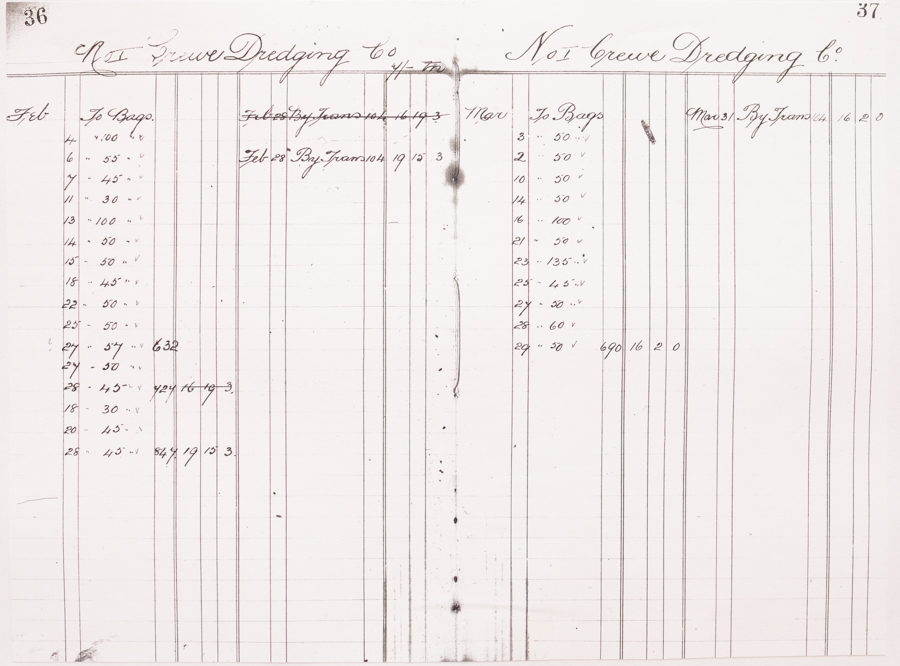 36
No I Crewe Dredging Co
Feb To Bags.
4 " 100 " "
6 " 55 " "
7 " 45 " "
11 " 30 " "
13 " 100 " "
14 " 50 " "
15 " 50 " "
18 " 45 " "
22 " 50 " "
25 " 50 " "
27 " 57 " " 632
27 " 50 " "
28 " 45 " " 727 16 19 3
18 " 30 " "
20 " 45 " "
28 " 45 " " 847 19 15 3
Feb 28 By Trans 104 16 19 3
Feb 28 By Trans 104 19 15 3
37
No I Crewe Dredging Co.
Mar To Bags
3 " 50 " "
2 " 50 "
10 " 50 "
14 " 50 "
16 " 100 "
21 " 50 "
23 " 135 " "
25 " 45 " "
27 " 50 " "
28 " 60 "
29 " 50 " 690 16 2 0
Mar 31 By Trans 16 2 0